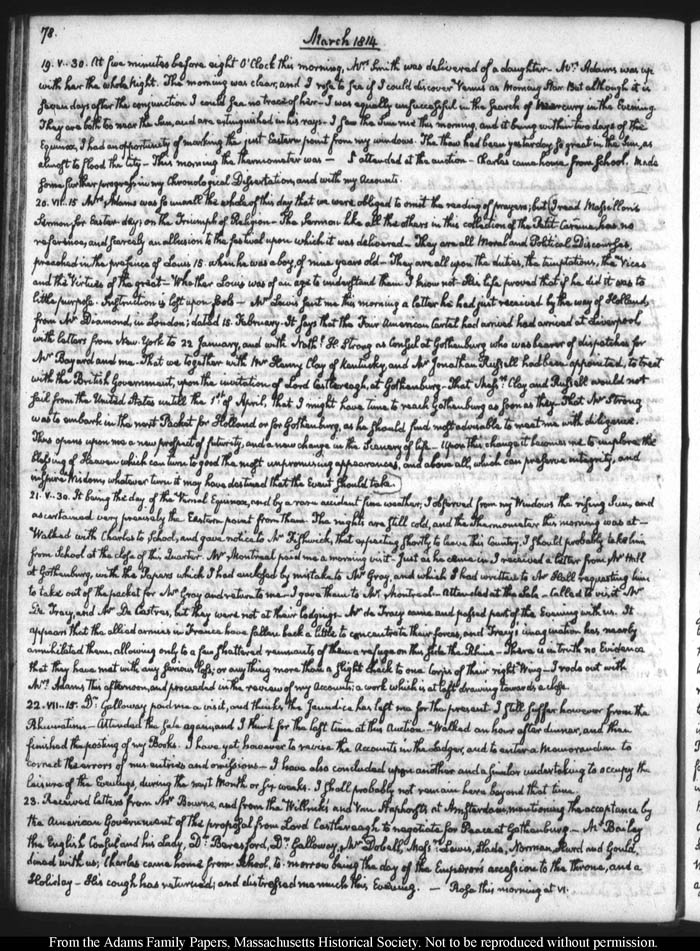 78.
March 1814
19. V.. 30. At five minutes before eight O'Clock this morning, Mrs Smith was delivered of a daughter — Mrs Adams was up
with her the whole Night. The morning was clear, and I rose to see if I could discover Venus as Morning Star. But although it is
seven days after the conjunction I could see no trace of her — I was equally unsuccessful in the search of Mercury in the Evening.
They are both too near the Sun, and are extinguished in his rays. I saw the Sun rise this morning, and it being within two days of the
Equinox, I had an opportunity of marking the just Eastern point from my windows. The thaw had been yesterday, so great in the Sun, as
almost to flood the City — This morning the thermometer was — I attended at the auction — Charles came home from School. Made
some further progress in my Chronological Dissertation, and with my Accounts.
20. VII.. 15. Mrs Adams was so unwell the whole of this day that we were obliged to omit the reading of prayers; but I read Massillon's
Sermon for Easter day; on the Triumph of Religion — The Sermon like all the others in this collection of the Petit Carême, has no
reference, and scarcely an allusion to the festival upon which it was delivered — They are all Moral and Political Discourses,
preached in the presence of Louis 15. when he was a boy of nine years old — They are all upon the duties, the temptations, the Vices
and the Virtues of the great — Whether Louis was of an age to understand them I know not. His life proved that if he did it was to
little purpose. Instruction is lost upon fools — Mr Lewis sent me this morning a letter he had just received by the way of Holland,
from Mr Dramond, in London; dated 15. February. It says that the Fair American Cartel had arrived had arrived at Liverpool
with letters from New-York to 22 January, and with Nathl. H. Strong as Consul at Gothenburg who was bearer of dispatches for
Mr Bayard and me. That we together with Mr Henny Clay of Kentucky, and Mr Jonathan Russell had been appointed, to treat
with the British Government, upon the invitation of Lord Castlereagh, at Gothenburg — That Messrs Clay and Russell would not
sail from the United States untill the 1st of April, that I might have time to reach Gothenburg as soon as they. That Mr Strong
was to embark in the next Packet for Holland or for Gothenburg, as he should find most advisable to meet me with diligence.
This opens upon me a new prospect of futurity, and a new change in the Scenery of life — Upon this change it becomes me to implore the
blessing of Heaven which can turn to good the most unpromising appearances, and above all, which can preserve integrity, and
inspire Wisdom, whatever turn it may have destined that the Event should take.
21. V.. 30. It being the day of the Vernal Equinox, and by a rare accident fine weather, I observed from my Windows the rising Sun, and
ascertained very precisely the Eastern point from them. The nights are still cold, and the Thermometer this morning was at —
Walked with Charles to School, and gave notice to Mr Fishwick, that expecting shortly to leave this Country, I should probably take him
from School at the close of this Quarter. Mr Montreal paid me a morning visit. Just as he came in I received a letter from Mr Hall
at Gothenburg, with the Papers which I had enclosed by mistake to Mr Gray, and which I had written to Mr Hall requesting him
to take out of the packet for Mr Gray and return to me. I gave them to Mr Montreal. Attended at the Sale. Called to visit Mr
De Tracy, and Mr De Castres, but they were not at their lodgings. Mr de Tracy came and passed part of the Evening with us. It
appears that the allied armies in France have fallen back a little to concentrate their forces, and Tracy's imagination has nearly
annihilated them, allowing only to a few shattered remnants of them a refuge on this side the Rhine — There is in truth no Evidence
that they have met with any serious loss; or any thing more than a slight check to one Corps of their right Wing — I rode out with
Mrs Adams this afternoon, and proceeded in the review of my Accounts; a work which is at last drawing towards a close.
22. VII.. 15. Dr Galloway paid me a visit, and thinks the Jaundice has left me for the present. I still suffer however from the
Rheumatism — Attended the Sale again, and I think for the last time at this Auction. Walked an hour after dinner, and then
finished the posting of my Books. I have yet however to revise the Accounts in the Ledger, and to enter a Memorandum to
correct the errors of mis-entries and omissions — I have also concluded upon another and a similar undertaking to occupy the
leisure of the Evenings, during the next Month or six weeks. I shall probably not remain here beyond that time.
23. Received letters from Mr Bourne, and from the Willinks and Van Staphorsts at Amsterdam, mentioning the acceptance by
the American Government of the proposal from Lord Castlereagh to negotiate for Peace at Gothenburg — Mr Bailey
the English Consul and his Lady, Dr Beresford, Dr Galloway, Mr Dobell, Messrs Lewis, Slade, Norman, Hurd and Gould,
dined with us; Charles came home from School, to-morrow being the day of the Emperor's accession to the throne, and a
Holiday — His cough has returned; and distressed me much this Evening. — Rose this morning at VI.
From the Adams Family Papers, Massachusetts Historical Society. Not to be reproduced without permission.